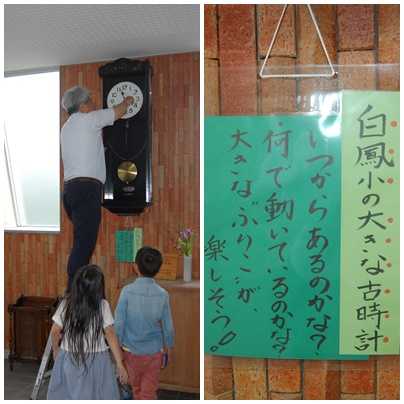 白鳳小の大きな古時計
いつからあるのかな?
・何で動いているのかな?
大きなぶりこが、
楽しそう!